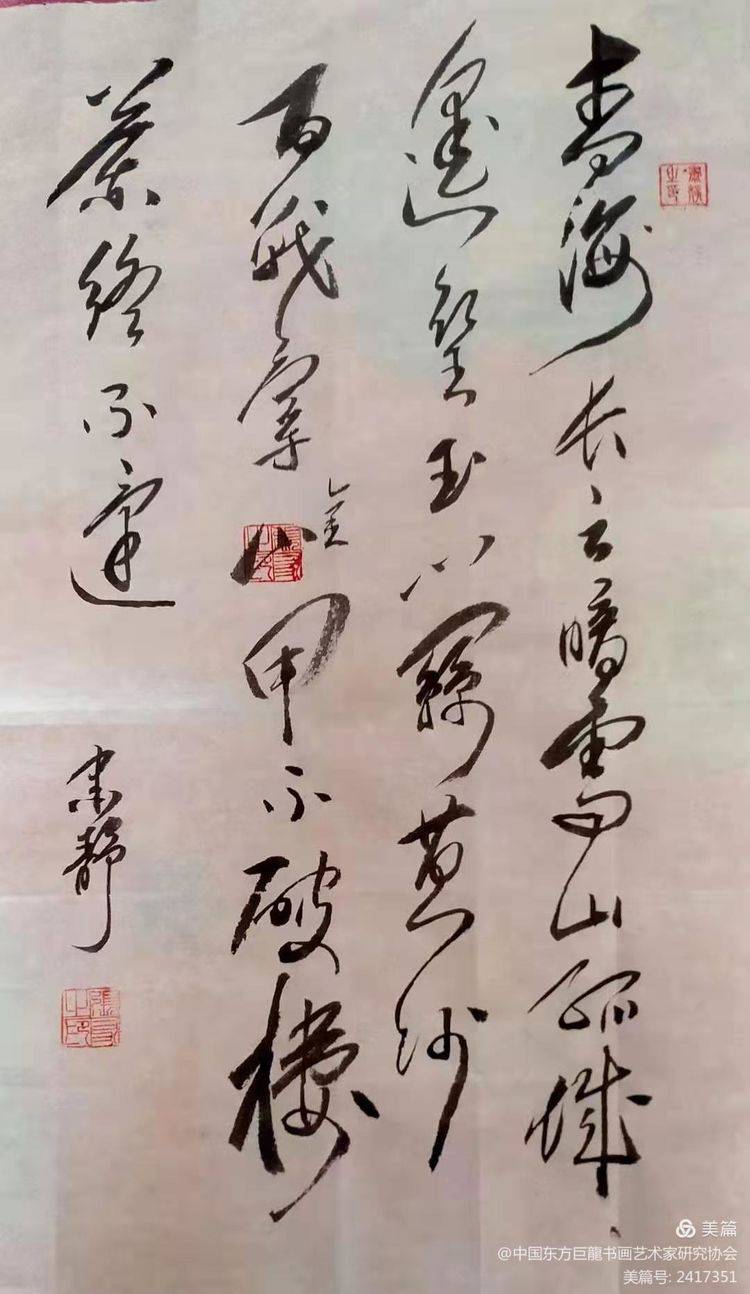 青海长云暗雪山孤城
遙望玉门關黄沙
百战穿金甲不破樓
蘭终不還
美篇
@中国东方巨龍书画艺术家研究协会
美篇号: 2417351